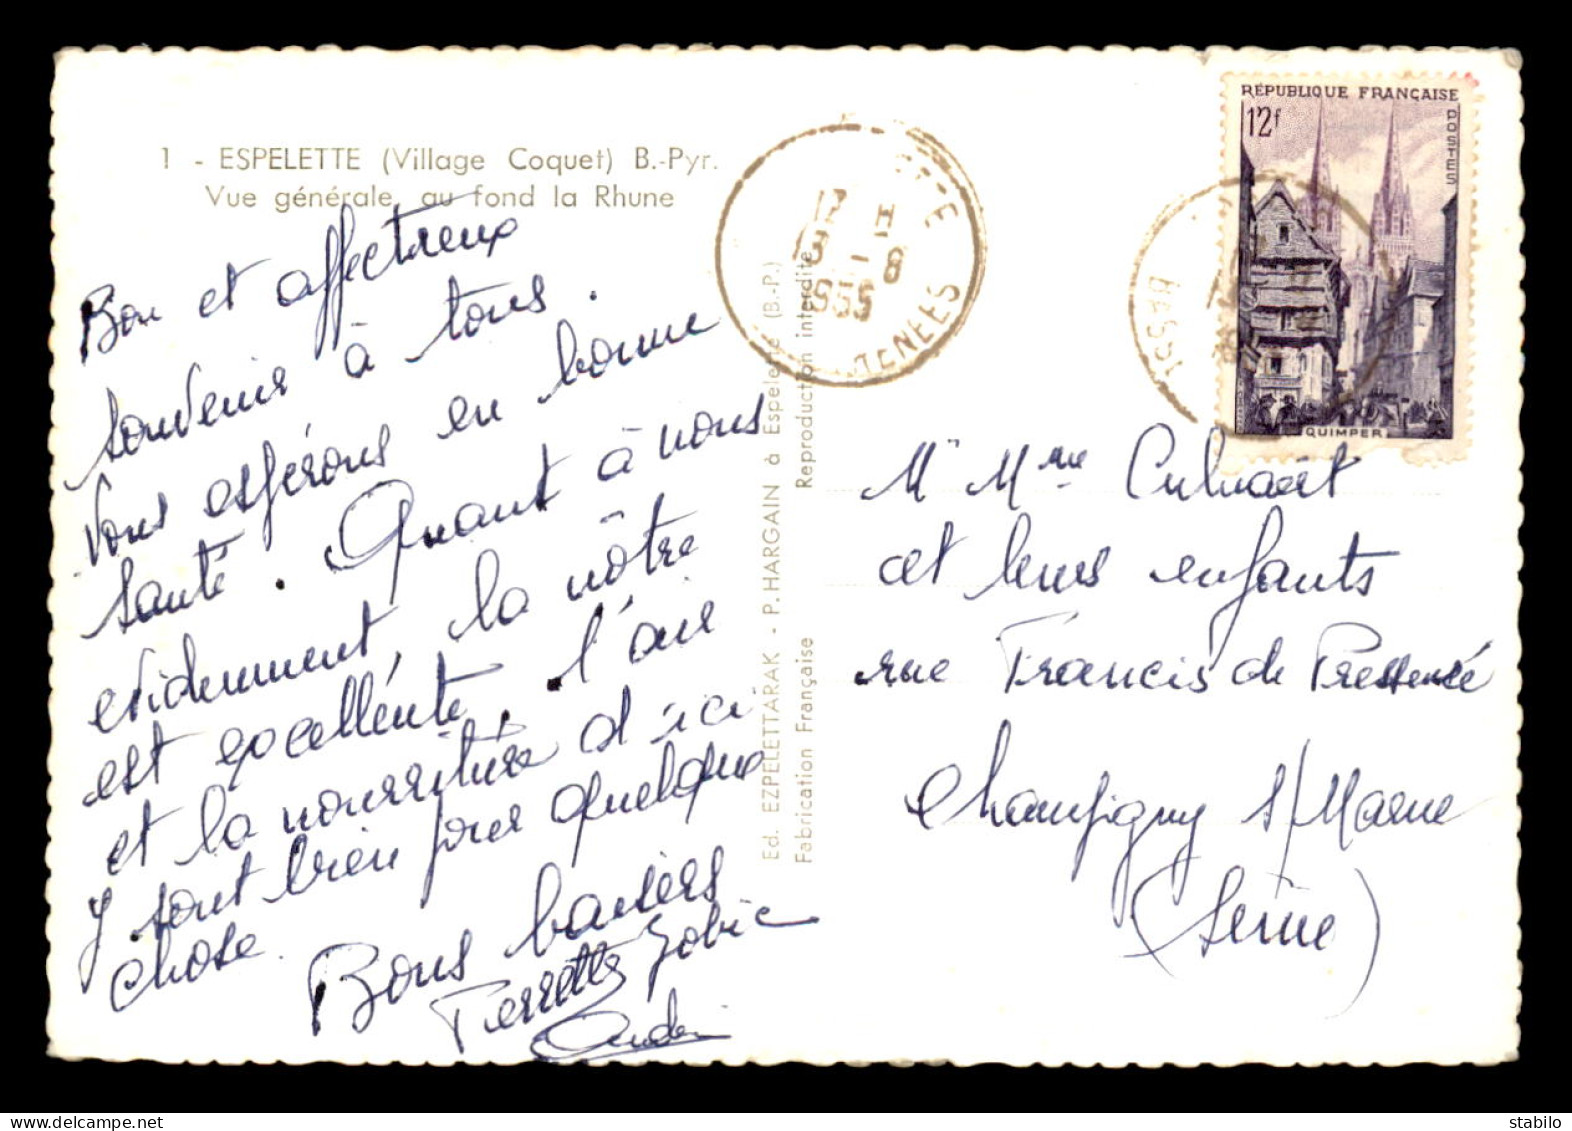 1 - ESPELETTE (Village Coquet) B.-Pyr.
Vue générale, au fond la Rhune
Bon et affectueux
souvenir à tous.
Vous espérons en bonne
santé. Quant à nous
evidemment, la nôtre
est excellente. l'air
et la nourriture d'ici
y sont bien pour quelque
chose.
Bons baisers
Ed. EZPELETTARAK - P. HARGAIN à Espelette (B.-P.)
Fabrication Française Reproduction interdite
1955
RÉPUBLIQUE FRANÇAISE
12f
POSTES
QUIMPER
Mr Mme
et leurs enfants
rue Francis de Pressensé
Champigny s/Marne
(Seine)
stabilo